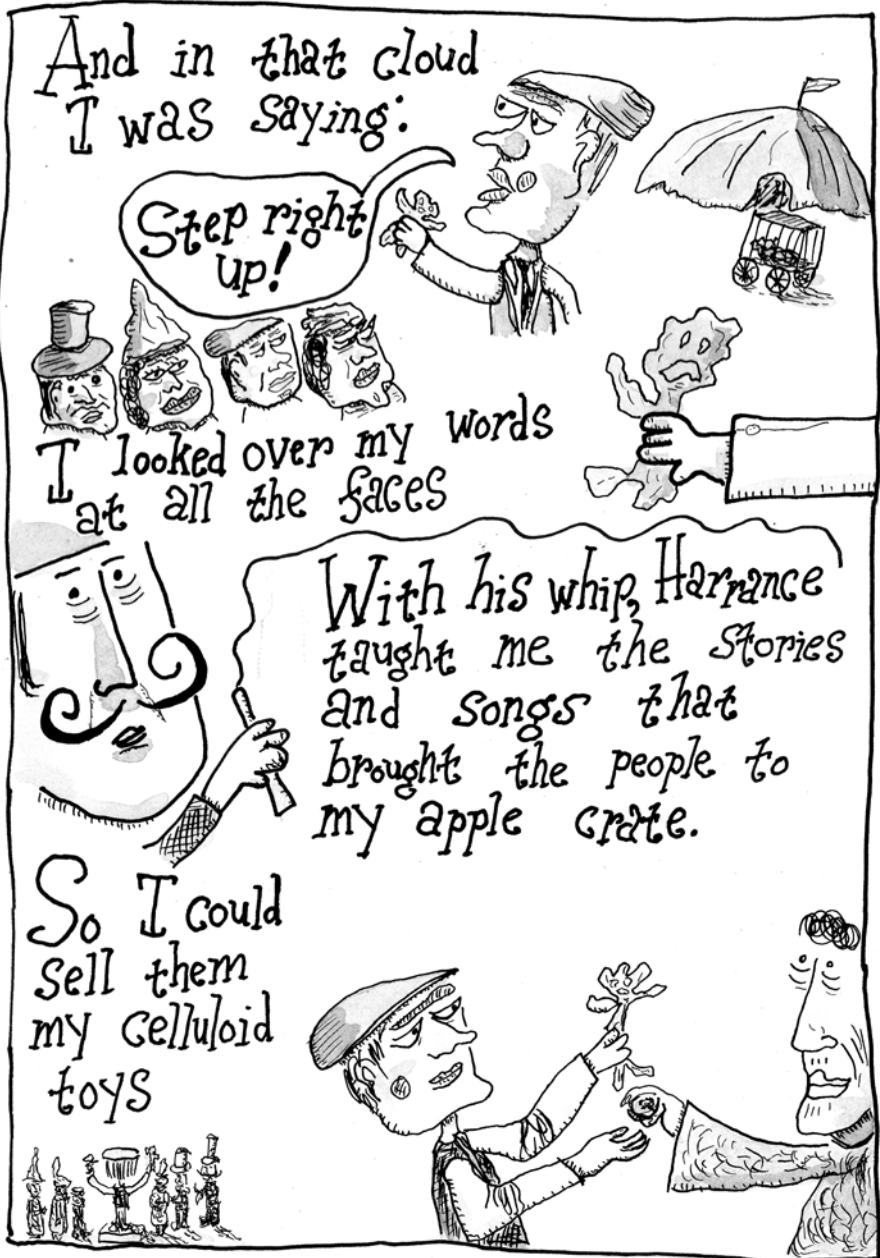 And in that cloud
I was saying:
Step right
up!
I looked over my words
at all the faces
With his whip, Harrance
taught me the stories
and songs that
brought the people to
my apple crate.
So I could
sell them
my celluloid
toys